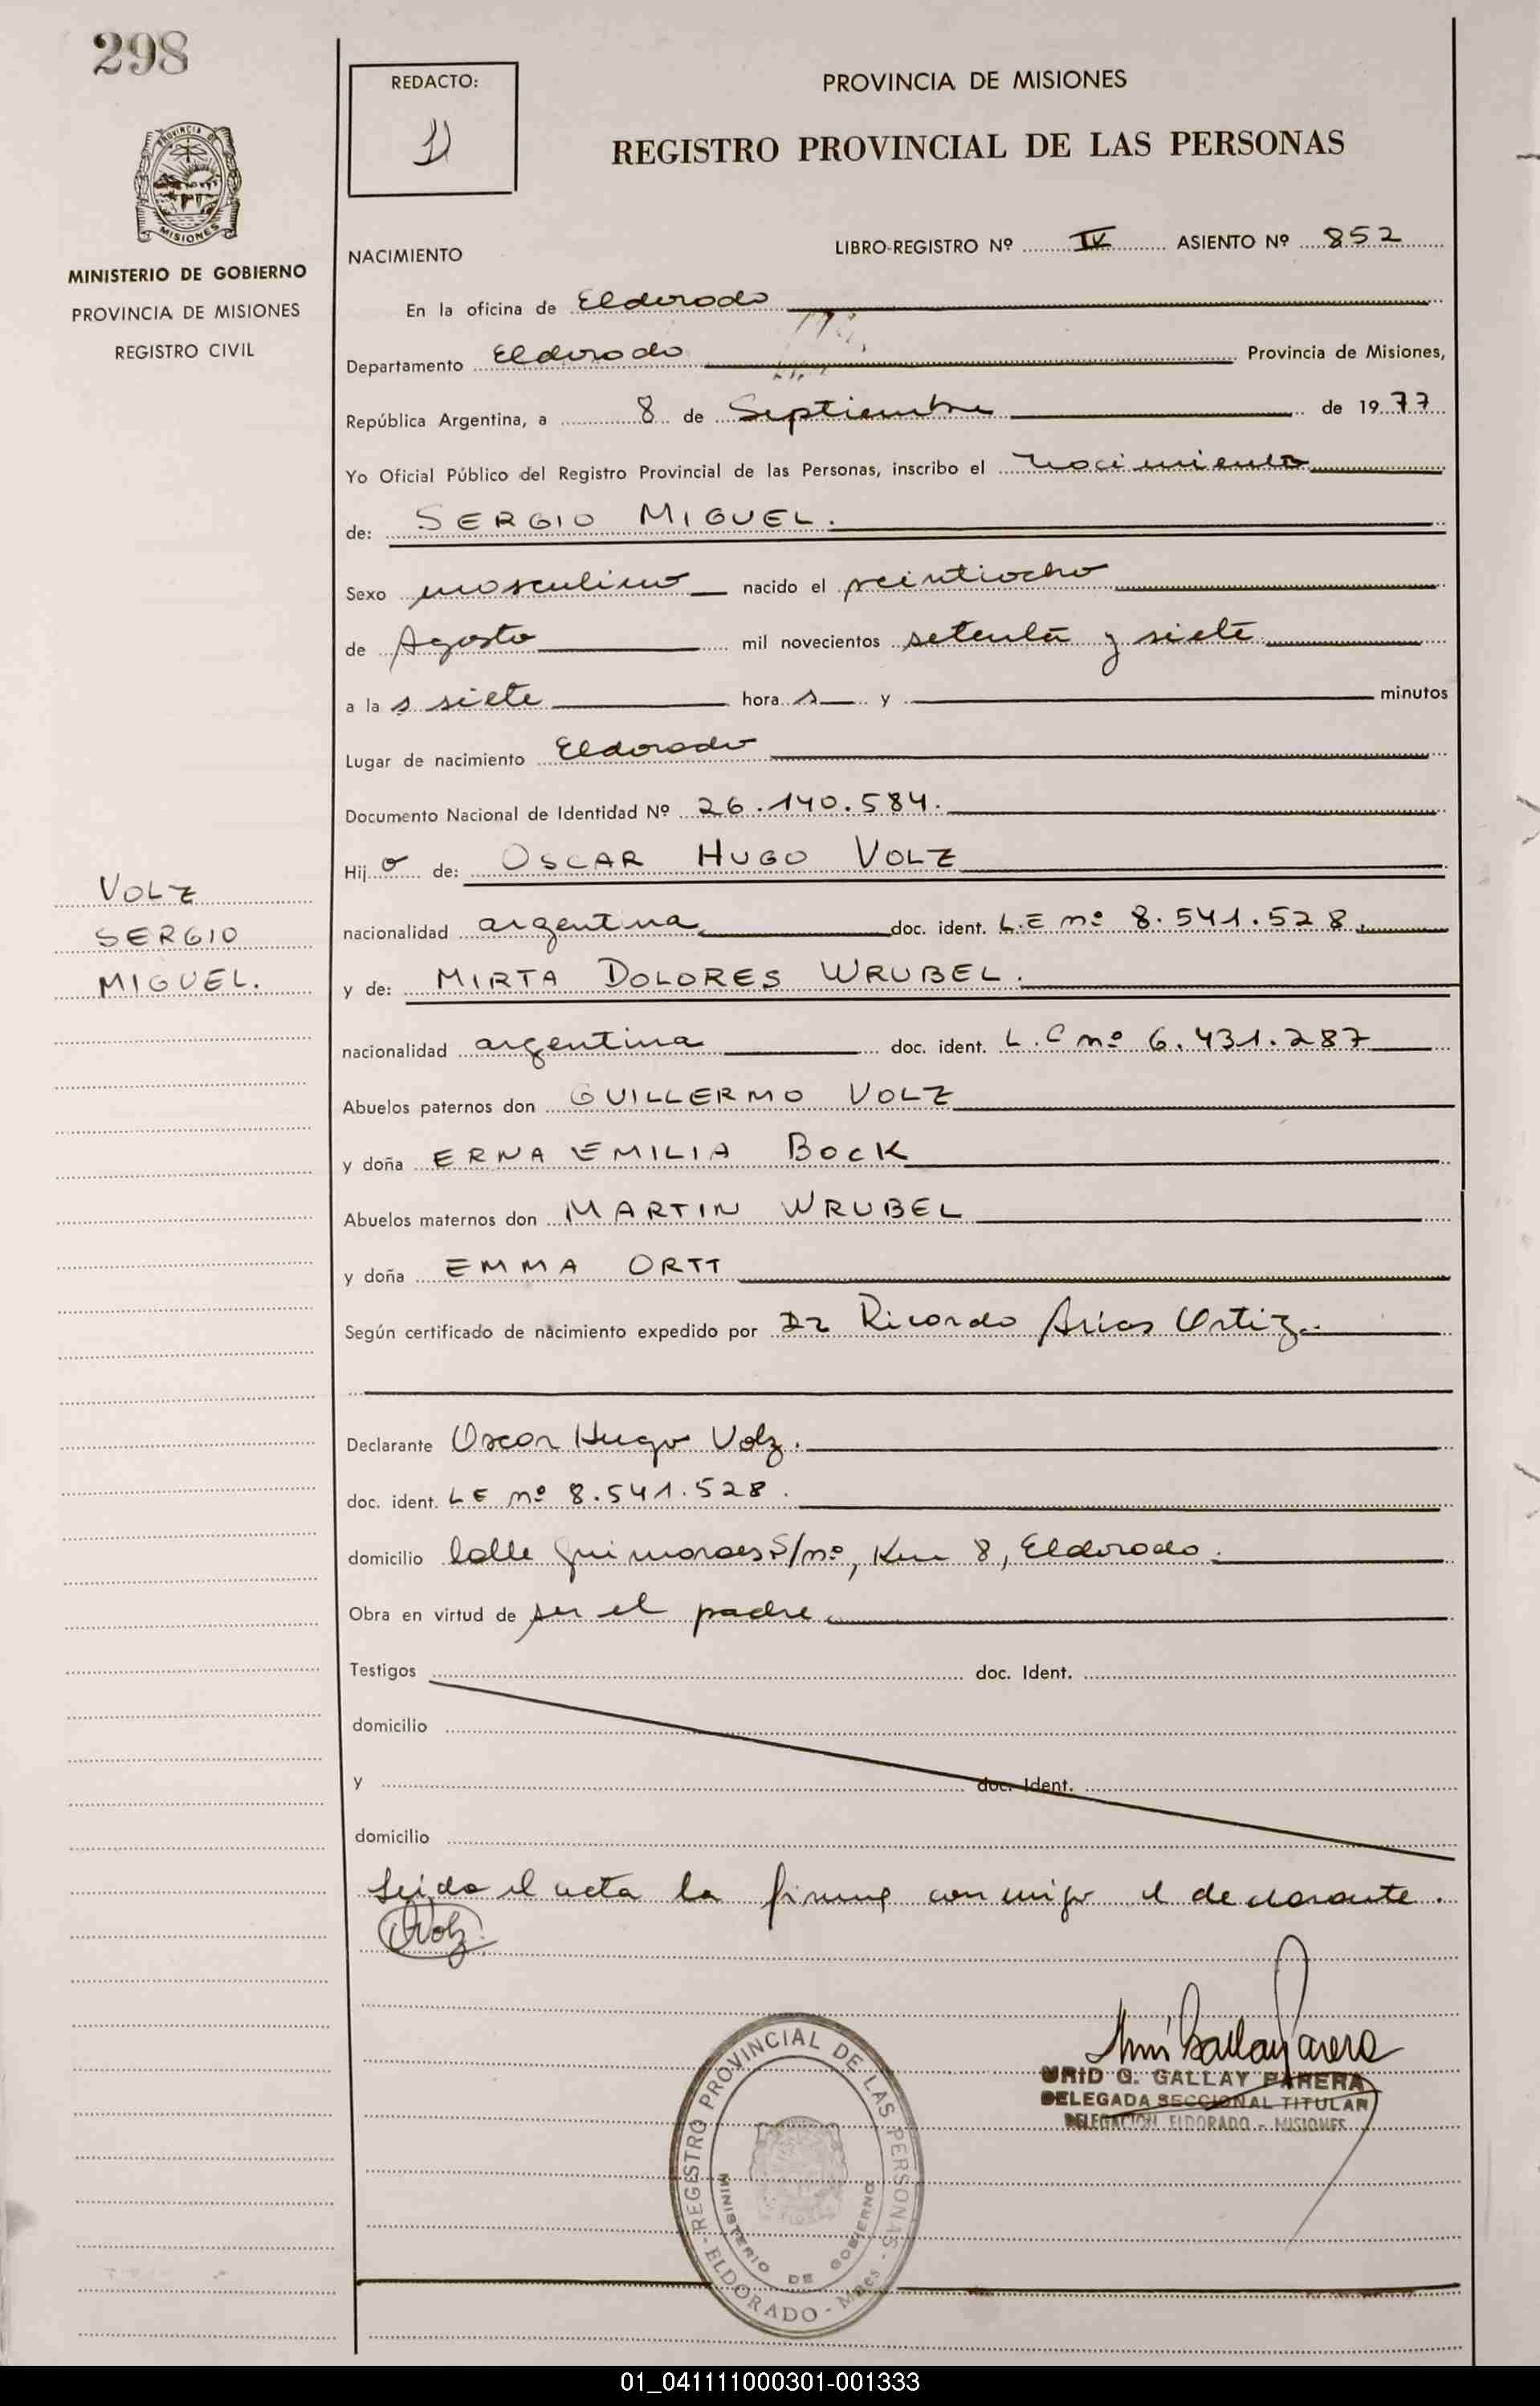 298
REDACTO:
PROVINCIA DE MISIONES
REGISTRO PROVINCIAL DE LAS PERSONAS
PROVINCIA DE
MISIONES
MINISTERIO DE GOBIERNO
PROVINCIA DE MISIONES
REGISTRO CIVIL
LIBRO-REGISTRO Nº IV ASIENTO Nº 852
NACIMIENTO
En la oficina de Eldorado
Departamento Eldorado Provincia de Misiones,
República Argentina, a 8 de Septiembre de 1977
Yo Oficial Público del Registro Provincial de las Personas, inscribo el nacimiento
de: SERGIO MIGUEL.
Sexo masculino nacido el veintiocho
de Agosto mil novecientos setenta y siete
a las siete horas y minutos
Lugar de nacimiento Eldorado
Documento Nacional de Identidad Nº 26.140.584.
Hijo de: OSCAR HUGO VOLZ
VOLZ
SERGIO
MIGUEL.
nacionalidad argentina doc. ident. L.E nº 8.541.528.
y de: MIRTA DOLORES WRUBEL.
nacionalidad argentina doc. ident. L.C nº 6.431.287
Abuelos paternos don GUILLERMO VOLZ
y doña ERNA EMILIA BOCK
Abuelos maternos don MARTIN WRUBEL
y doña EMMA ORTT
Según certificado de nacimiento expedido por Dr Ricardo Arias Ortiz.
Declarante Oscar Hugo Volz.
doc. ident. LE nº 8.541.528.
domicilio Calle Guimaraes S/nº, Km 8, Eldorado.
Obra en virtud de ser el padre.
Testigos doc. Ident.
domicilio
y doc. Ident.
domicilio
Leída el acta la firma conmigo el declarante.
Volz
G. GALLAY PARERA
DELEGADA SECCIONAL TITULAR
DELEGACION ELDORADO - MISIONES
REGISTRO PROVINCIAL DE LAS PERSONAS - ELDORADO - Mnes -
MINISTERIO DE GOBIERNO
01_041111000301-001333